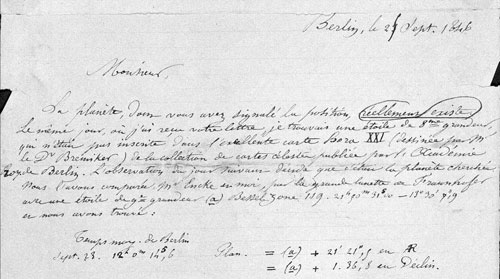 Berlin, le 25 Sept. 1846
Monsieur,
La planète, dont vous avez signalé la position, réellement existe.
Le même jour, où j'ai reçu votre lettre, je trouvais une étoile de 8me grandeur,
qui n'était pas inscrite dans l'excellente carte hora XXI (dessinée par Mr.
le Dr Bremiker) de la collection de cartes célestes publiée par l'Académie
royale de Berlin. L'observation du jour suivant décida que c'était la planète cherchée.
Nous l'avons comparée, Mr. Encke et moi, par la grande lunette de Fraunhofer
avec une étoile de 9e grandeur (a) Bessel zone 119.
et nous avons trouvé:
Temps moy. de Berlin
Sept. 23. 12h 0m 14s,6 Plan. = (a) + AR
= (a) + en Déclin.